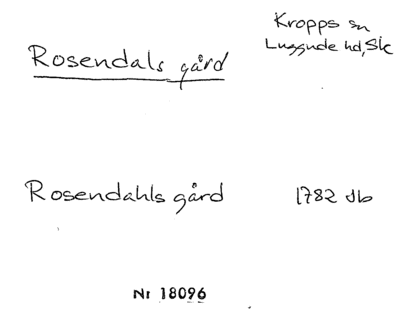 Kropps sn
Luggude hd, Sk
Rosendals gård
Rosendahls gård 1782 db
Nr 18096